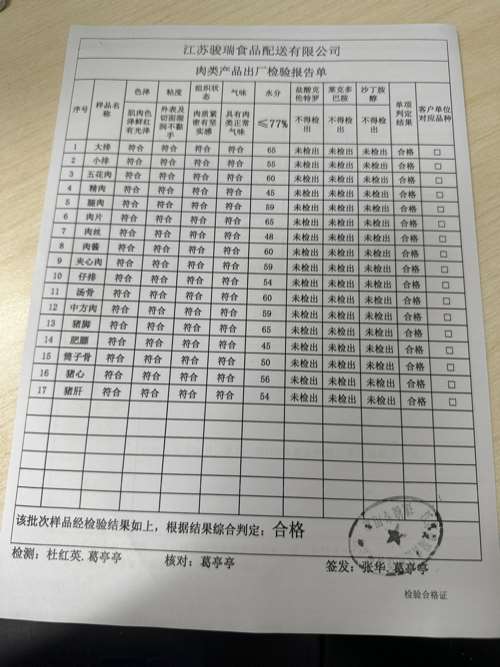 江苏骏瑞食品配送有限公司
肉类产品出厂检验报告单
序号 样品名称 色泽 粘度 组织状态 气味 水分 盐酸克伦特罗 莱克多巴胺 沙丁胺醇 单项判定结果 客户单位对应品种
肌肉色泽鲜红有光泽 外表及切面湿润不黏手 肉质紧密有坚实感 具有肉类正常气味 ≤77% 不得检出 不得检出 不得检出
1 大排 符合 符合 符合 符合 65 未检出 未检出 未检出 合格 □
2 小排 符合 符合 符合 符合 55 未检出 未检出 未检出 合格 □
3 五花肉 符合 符合 符合 符合 60 未检出 未检出 未检出 合格 □
4 精肉 符合 符合 符合 符合 45 未检出 未检出 未检出 合格 □
5 腿肉 符合 符合 符合 符合 59 未检出 未检出 未检出 合格 □
6 肉片 符合 符合 符合 符合 65 未检出 未检出 未检出 合格 □
7 肉丝 符合 符合 符合 符合 48 未检出 未检出 未检出 合格 □
8 肉酱 符合 符合 符合 符合 60 未检出 未检出 未检出 合格 □
9 夹心肉 符合 符合 符合 符合 59 未检出 未检出 未检出 合格 □
10 仔排 符合 符合 符合 符合 54 未检出 未检出 未检出 合格 □
11 汤骨 符合 符合 符合 符合 60 未检出 未检出 未检出 合格 □
12 中方肉 符合 符合 符合 符合 59 未检出 未检出 未检出 合格 □
13 猪脚 符合 符合 符合 符合 65 未检出 未检出 未检出 合格 □
14 肥膘 符合 符合 符合 符合 45 未检出 未检出 未检出 合格 □
15 筒子骨 符合 符合 符合 符合 50 未检出 未检出 未检出 合格 □
16 猪心 符合 符合 符合 符合 56 未检出 未检出 未检出 合格 □
17 猪肝 符合 符合 符合 符合 54 未检出 未检出 未检出 合格 □
该批次样品经检验结果如上，根据结果综合判定：合格
检测：杜红英.葛亭亭 核对：葛亭亭 签发：张华.葛亭亭
检验合格证